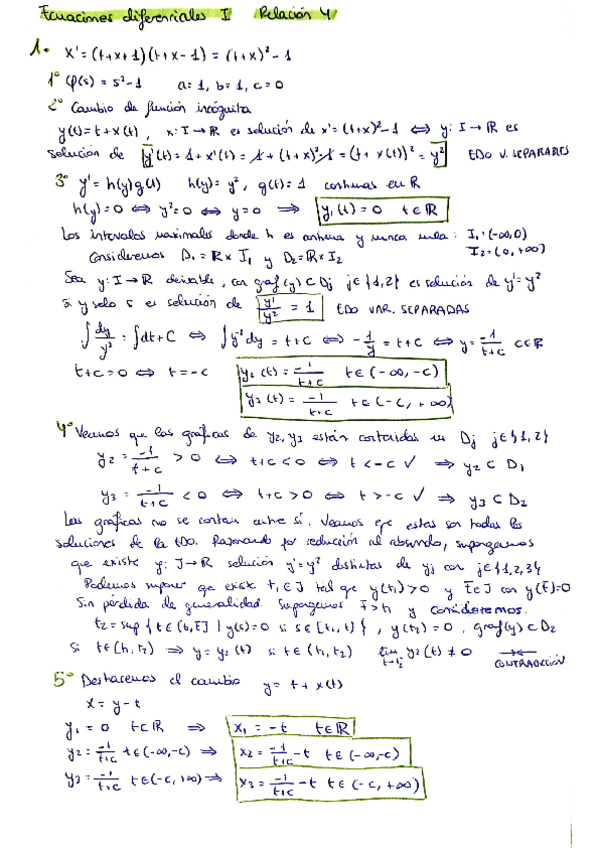 Ecuaciones diferenciales I Relación 4
1. x' = (t+x+1)(t+x-1) = (t+x)² - 1
1º φ(s) = s² - 1 a = 1, b = 1, c = 0
2º Cambio de función incógnita
y(t) = t + x(t), x: I → ℝ es solución de x' = (t+x)² - 1 ⇔ y: I → ℝ es
solución de y'(t) = 1 + x'(t) = 1 + (t+x)² - 1 = (t + x(t))² = y² EDO V. SEPARABLES
3º y' = h(y)g(t) h(y) = y², g(t) = 1 continuas en ℝ
h(y) = 0 ⇔ y² = 0 ⇔ y = 0 ⇒ y₁(t) = 0 t ∈ ℝ
Los intervalos maximales donde h es continua y nunca nula: I₁ = (-∞, 0)
I₂ = (0, +∞)
Consideremos D₁ = ℝ × I₁ y D₂ = ℝ × I₂
Sea y: I → ℝ derivable, con graf(y) ⊂ Dj j ∈ {1,2} es solución de y' = y²
si y solo si es solución de y'/y² = 1 EDO VAR. SEPARADAS
∫ dy/y² = ∫ dt + C ⇔ ∫ y⁻² dy = t + C ⇔ -1/y = t + C ⇔ y = -1/(t+C) C ∈ ℝ
t + C = 0 ⇔ t = -C y₂(t) = -1/(t+C) t ∈ (-∞, -C)
y₃(t) = -1/(t+C) t ∈ (-C, +∞)
4º Veamos que las gráficas de y₂, y₃ están contenidas en Dj j ∈ {1,2}
y₂ = -1/(t+C) > 0 ⇔ t+C < 0 ⇔ t < -C ✓ ⇒ y₂ ⊂ D₁
y₃ = -1/(t+C) < 0 ⇔ t+C > 0 ⇔ t > -C ✓ ⇒ y₃ ⊂ D₂
Las gráficas no se cortan entre sí. Veamos que estas son todas las
soluciones de la EDO. Razonando por reducción al absurdo, supongamos
que existe y: J → ℝ solución y' = y² distintas de yj con j ∈ {1,2,3}
Podemos suponer que existe t₁ ∈ J tal que y(t₁) > 0 y t̄ ∈ J con y(t̄) = 0
Sin pérdida de generalidad. Supongamos t̄ > t₁ y consideremos.
t₂ = sup { t ∈ (t₁, t̄] | y(s) = 0 si s ∈ [t₁, t) }, y(t₂) = 0, graf(y) ⊂ D₂
si t ∈ (t₁, t₂) ⇒ y = y₂(t) si t ∈ (t₁, t₂) lim t→t₂ y₂(t) ≠ 0 →← CONTRADICCIÓN
5º Deshacemos el cambio y = t + x(t)
x = y - t
y₁ = 0 t ∈ ℝ ⇒ x₁ = -t t ∈ ℝ
y₂ = -1/(t+C) t ∈ (-∞, -C) ⇒ x₂ = -1/(t+C) - t t ∈ (-∞, -C)
y₃ = -1/(t+C) t ∈ (-C, +∞) ⇒ x₃ = -1/(t+C) - t t ∈ (-C, +∞)